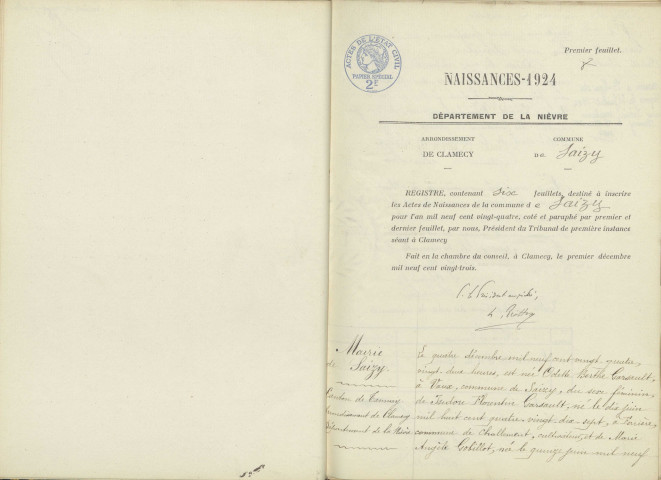 Premier feuillet.
ACTES DE L'ÉTAT CIVIL
PAPIER SPÉCIAL
2F
NAISSANCES-1924
DÉPARTEMENT DE LA NIÈVRE
ARRONDISSEMENT
DE CLAMECY
COMMUNE
DE Saizy
REGISTRE, contenant six feuillets, destiné à inscrire
les Actes de Naissances de la commune de Saizy
pour l'an mil neuf cent vingt-quatre, coté et paraphé par premier et
dernier feuillet, par nous, Président du Tribunal de première instance
séant à Clamecy
Fait en la chambre du conseil, à Clamecy, le premier décembre
mil neuf cent vingt-trois.
Mairie
de Saizy
Canton de Tannay
Arrondissement de Clamecy
Département de la Nièvre
Le quatre décembre mil neuf cent vingt quatre,
vingt deux heures, est née Odette Berthe
à commune de Saizy, du sexe féminin,
de Isidore Florentin né le dix juin
mil huit cent quatre vingt dix sept, à
commune de Challement, cultivateur, et de Marie
Angèle née le quinze juin mil neuf